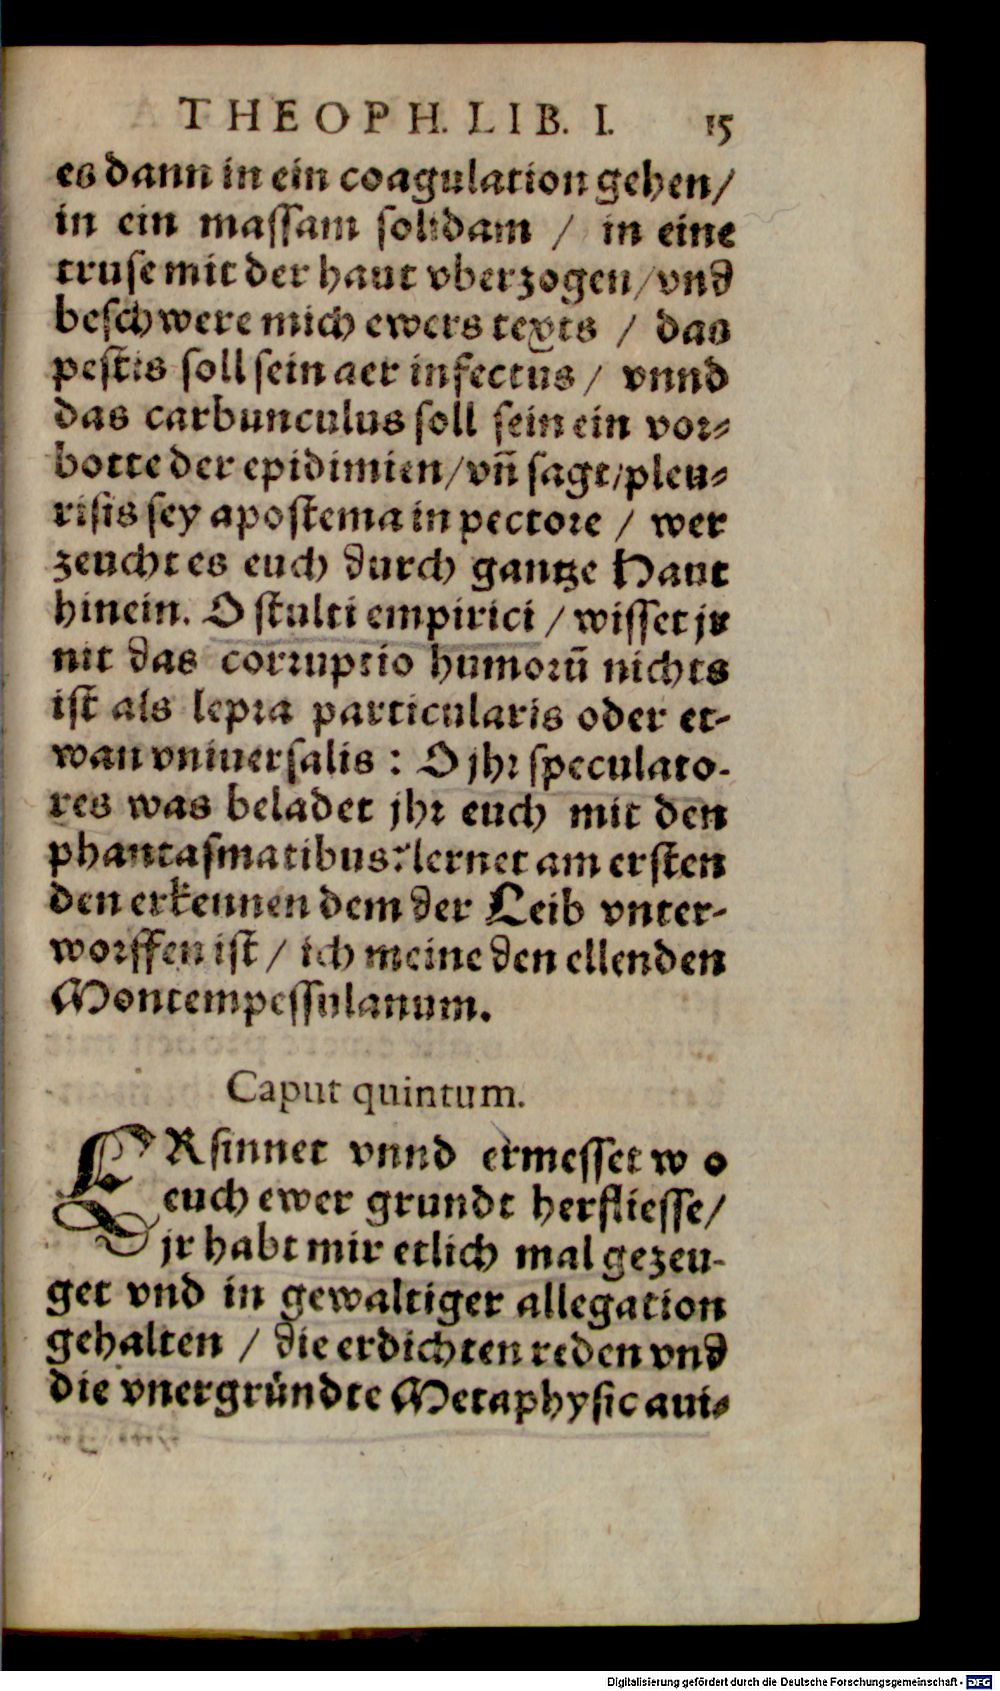 THEOPH. LIB. I. 15
es dann in ein coagulation gehen/
in ein massam solidam / in eine
truse mit der haut vberzogen/vnd
beschwere mich ewers texts / das
pestis soll sein aer infectus / vnnd
das carbunculus soll sein ein vor⸗
botte der epidimien/vñ sagt/pleu⸗
risis sey apostema in pectore / wer
zeucht es euch durch gantze Haut
hinein. O stulti empirici / wisset jr
nit das corruptio humorū nichts
ist als lepra particularis oder et-
wan vniuersalis: O jhr speculato-
res was beladet jhr euch mit den
phantasmatibus? lernet am ersten
den erkennen dem der Leib vnter-
worffen ist / ich meine den ellenden
Montempessulanum.
Caput quintum.
ERsinnet vnnd ermesset wo
euch ewer grundt herfliesse/
jr habt mir etlich mal gezeu-
get vnd in gewaltiger allegation
gehalten / die erdichten reden vnd
die vnergründte Metaphysic aui⸗
Digitalisierung gefördert durch die Deutsche Forschungsgemeinschaft - DFG